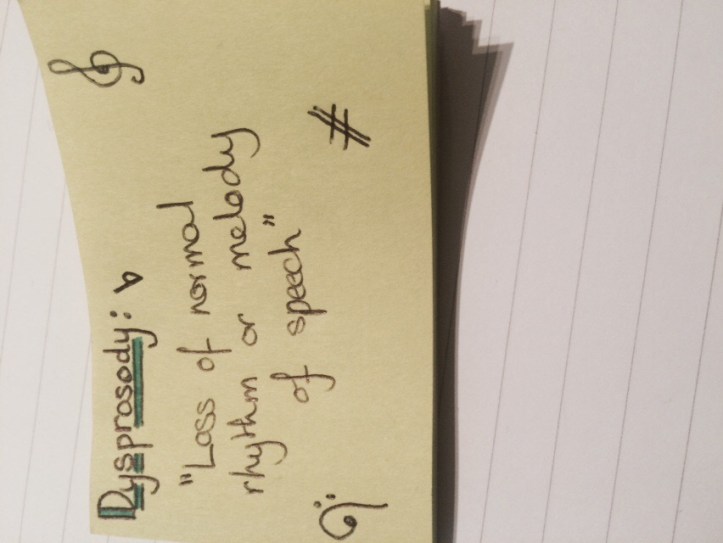 Dysprosody: ♭
"Loss of normal
rhythm or melody
of speech"